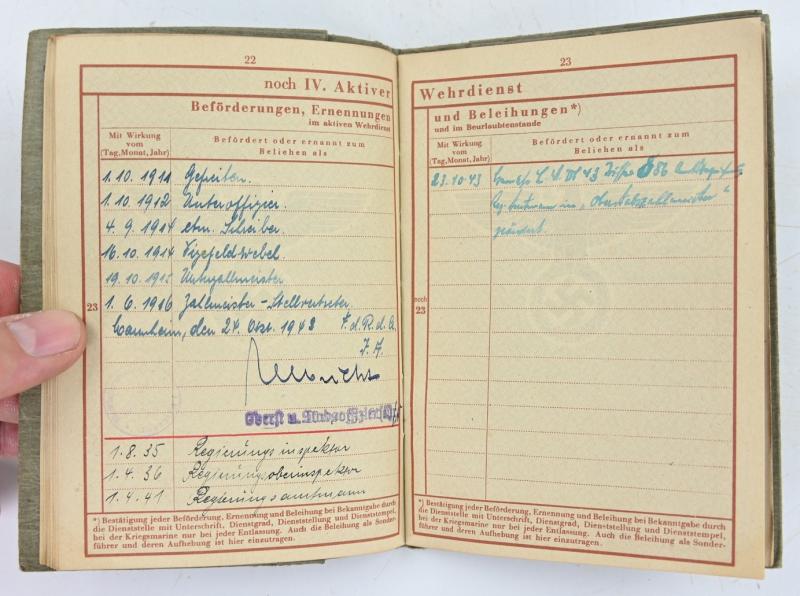 22
noch IV. Aktiver
Beförderungen, Ernennungen
im aktiven Wehrdienst
Mit Wirkung
vom
(Tag, Monat, Jahr)
Befördert oder ernannt zum
Beliehen als
1. 10. 1911 Gefreiten.
1. 10. 1912 Unteroffizier.
4. 9. 1914 etm. Schreiber.
16. 10. 1914 Vizefeldwebel.
19. 10. 1915 Unterzahlmeister
1. 6. 1916 Zahlmeister-Stellvertreter.
23
Mannheim, den 24. Okt. 1943 F. d. R. d. A.
I. A.
Oberst u.
1. 8. 35 Regierungsinspektor
1. 4. 36 Regierungsoberinspektor
1. 4. 41 Regierungsamtmann
*) Bestätigung jeder Beförderung, Ernennung und Beleihung bei Bekanntgabe durch
die Dienststelle mit Unterschrift, Dienstgrad, Dienststellung und Dienststempel,
bei der Kriegsmarine nur bei jeder Entlassung. Auch die Beleihung als Sonder-
führer und deren Aufhebung ist hier einzutragen.
23
Wehrdienst
und Beleihungen*)
und im Beurlaubtenstande
Mit Wirkung
vom
(Tag, Monat, Jahr)
Befördert oder ernannt zum
Beliehen als
23. 10. 43 43 Ziffer
in „Oberstabszahlmeister"
geändert.
noch
23
*) Bestätigung jeder Beförderung, Ernennung und Beleihung bei Bekanntgabe durch
die Dienststelle mit Unterschrift, Dienstgrad, Dienststellung und Dienststempel,
bei der Kriegsmarine nur bei jeder Entlassung. Auch die Beleihung als Sonder-
führer und deren Aufhebung ist hier einzutragen.